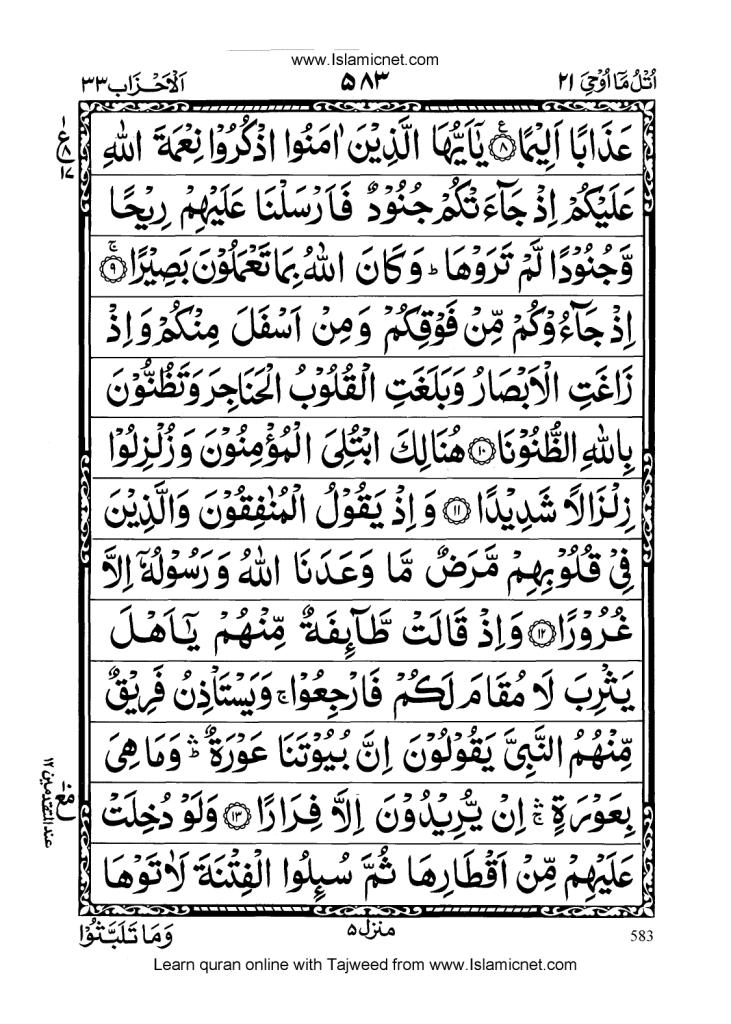 www.Islamicnet.com
اُتْلُ مَآ اُوْحِیَ ٢١
٥٨٣
اَلْاَحْزَاب ٣٣
عَذَابًا اَلِيْمًا ۝٨ يٰٓاَيُّهَا الَّذِيْنَ اٰمَنُوا اذْكُرُوْا نِعْمَةَ اللّٰهِ
ع ٨ ١٧
عَلَيْكُمْ اِذْ جَآءَتْكُمْ جُنُوْدٌ فَاَرْسَلْنَا عَلَيْهِمْ رِيْحًا
وَّجُنُوْدًا لَّمْ تَرَوْهَا ؕ وَكَانَ اللّٰهُ بِمَا تَعْمَلُوْنَ بَصِيْرًا ۝٩ ۚ
اِذْ جَآءُوْكُمْ مِّنْ فَوْقِكُمْ وَمِنْ اَسْفَلَ مِنْكُمْ وَاِذْ
زَاغَتِ الْاَبْصَارُ وَبَلَغَتِ الْقُلُوْبُ الْحَنَاجِرَ وَتَظُنُّوْنَ
بِاللّٰهِ الظُّنُوْنَا ۝١٠ هُنَالِكَ ابْتُلِیَ الْمُؤْمِنُوْنَ وَزُلْزِلُوْا
زِلْزَالًا شَدِيْدًا ۝١١ وَاِذْ يَقُوْلُ الْمُنٰفِقُوْنَ وَالَّذِيْنَ
فِیْ قُلُوْبِهِمْ مَّرَضٌ مَّا وَعَدَنَا اللّٰهُ وَرَسُوْلُهٗٓ اِلَّا
غُرُوْرًا ۝١٢ وَاِذْ قَالَتْ طَّآئِفَةٌ مِّنْهُمْ يٰٓاَهْلَ
يَثْرِبَ لَا مُقَامَ لَكُمْ فَارْجِعُوْا ۚ وَيَسْتَاْذِنُ فَرِيْقٌ
مِّنْهُمُ النَّبِیَّ يَقُوْلُوْنَ اِنَّ بُيُوْتَنَا عَوْرَةٌ ۛؕ وَمَا هِیَ
بِعَوْرَةٍ ۛۚ اِنْ يُّرِيْدُوْنَ اِلَّا فِرَارًا ۝١٣ وَلَوْ دُخِلَتْ
مع
عند المتقدمين ١٢
عَلَيْهِمْ مِّنْ اَقْطَارِهَا ثُمَّ سُئِلُوا الْفِتْنَةَ لَاٰتَوْهَا
583
منزل ٥
وَمَا تَلَبَّثُوْا
Learn quran online with Tajweed from www.Islamicnet.com